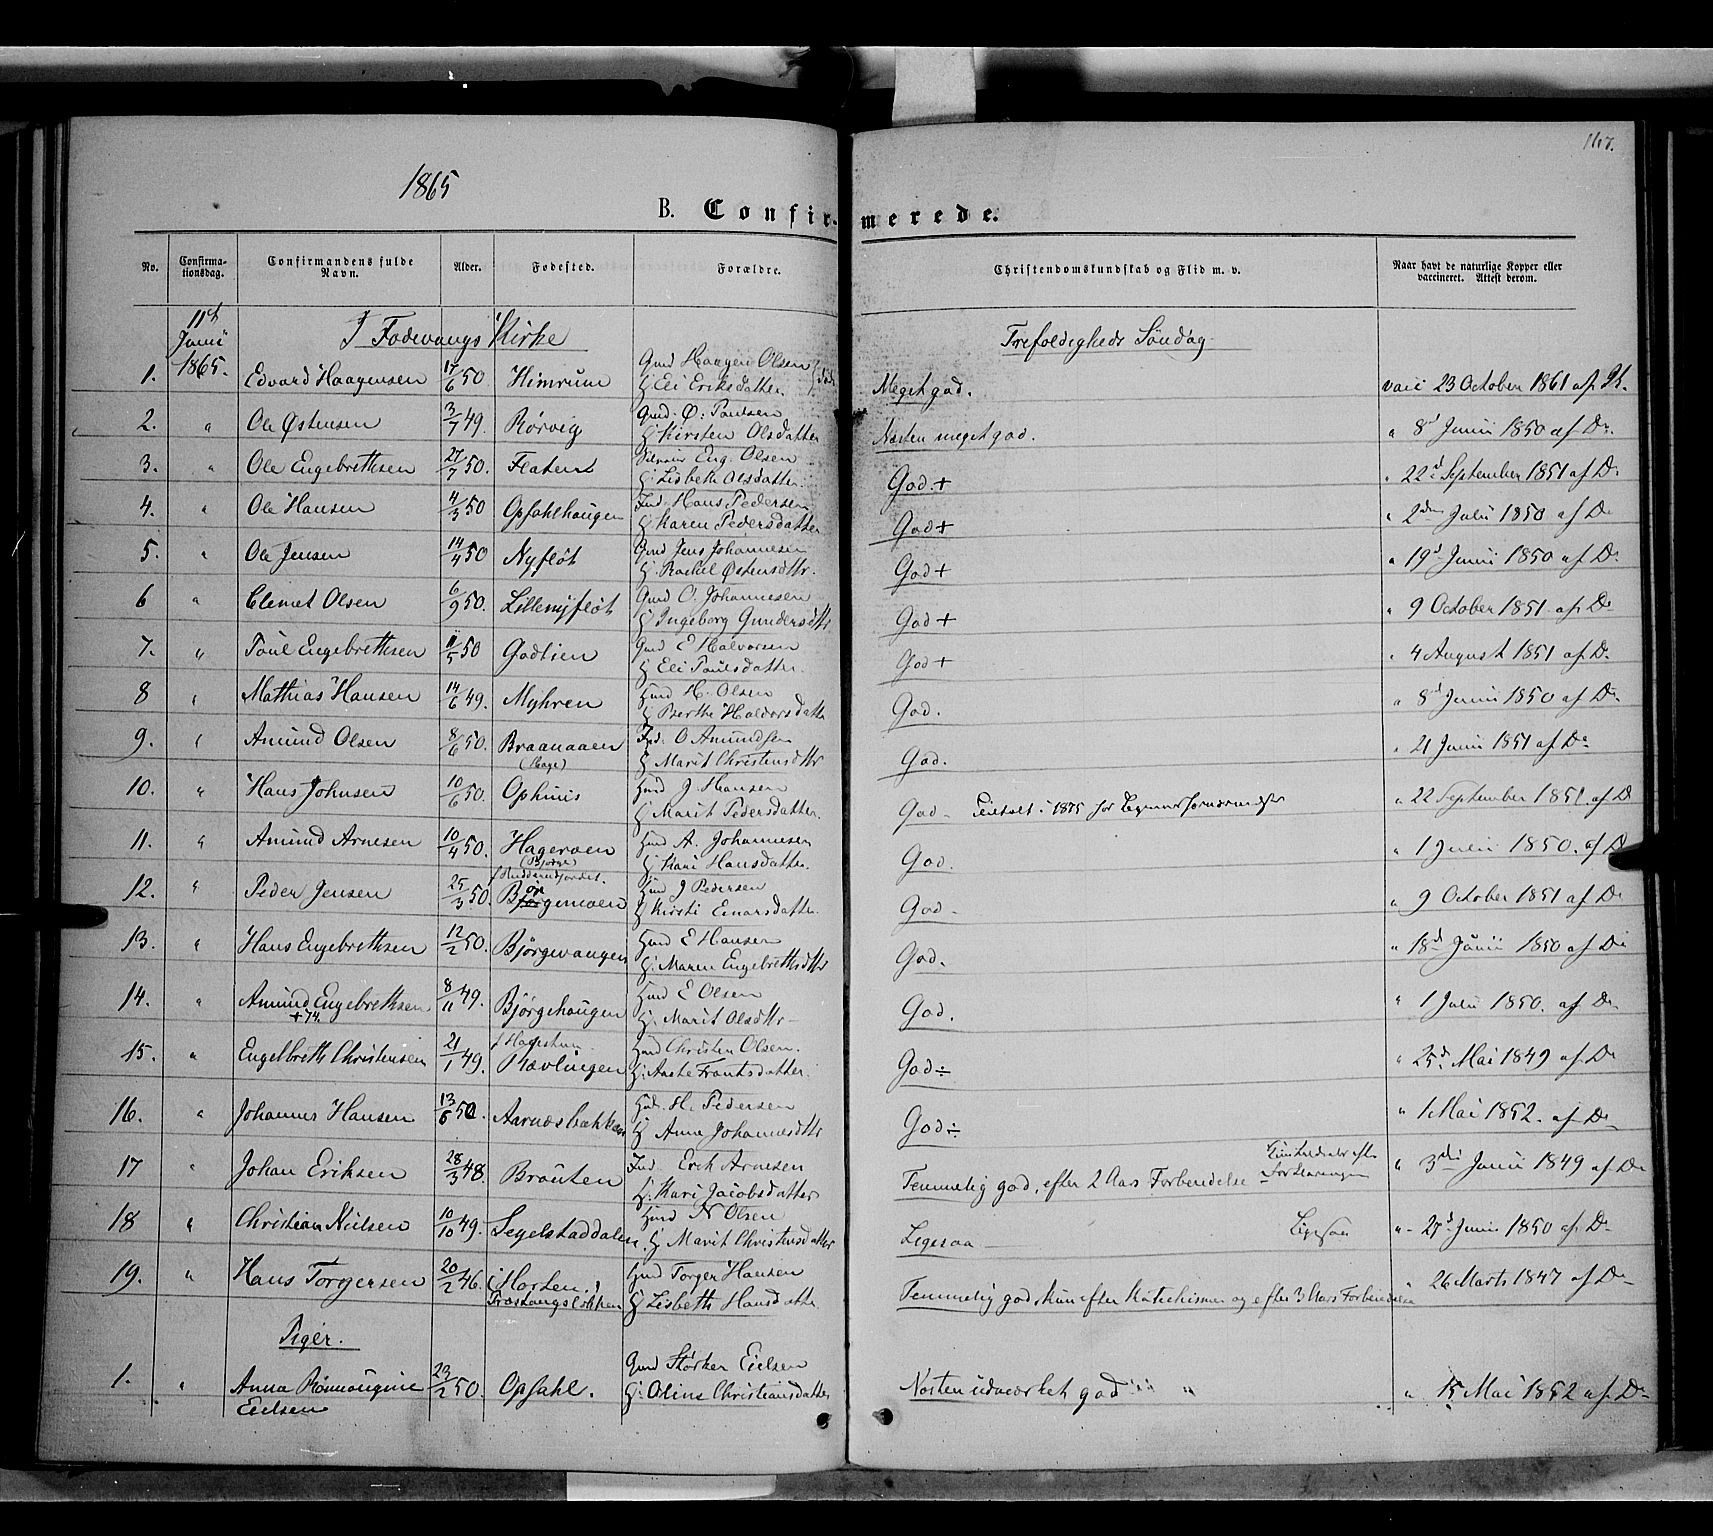 167.
1865
B. Confirmerede.
No. Confirmationsdag. Confirmandens fulde Navn. Alder. Fødested. Forældre. Christendomskundskab og Flid m. v. Naar havt de naturlige Kopper eller vaccineret. Attest derom.
11te Junii 1865. I Fodevangs Kirke Trefoldigheds Søndag
1. Edvard Haagensen 17/6 50 Himrum Gmd Haagen Olsen
H. Eli Eriksdatter Meget god. vacc 23 October 1861 af
2. " Ole Østensen 3/7 49. Rørvig Gmd. Ø. Paulsen
H. Kirsten Olsdatter Næsten meget god. " 8d Junii 1850 af Do.
3. " Ole Engebrethsen 27/7 50. Flaten Eng. Olsen
H. Lisbeth Olsdatter. God.+ " 22d September 1851 af Do
4. " Ole Hansen 4/3 50 Opsahlhaugen Ind. Hans Pedersen
H. Karen Pedersdatter God+ " 2den Julii 1850 af Do
5. " Ole Jensen 14/4 50 Nyfløt Gmd Jens Johannesen
H. Rachel Østensdttr. God+ " 19d Junii 1850 af Do
6 " Clemet Olsen 6/9 50. Lillenyfløt Gmd O. Johannesen
H Ingeborg Gundersdttr God+ " 9 October 1851. af Do
7. " Poul Engebrethsen /5 50 Godlien Gmd E Halvorsen
H Eli Poulsdatter. God+ " 4 August 1851 af Do
8 " Mathias Hansen 14/6 49. Myhren Hmd H. Olsen
H Berthe Halvorsdatter God. " 8d Junii 1850 af Do
9. " Amund Olsen 8/6 50. Braanaaen Ind. O Amundsen
H Marit Christensdttr God. " 21 Junii 1851 af Do
10. " Hans Johnsen 10/6 50. Ophuus Hmd J. Hansen
H Marit Pedersdatter. God - " 22 September 1851 af Do
11. " Amund Arnesen 10/4 50. Hageroen
(Bjørge) Hmd A. Johannesen
H. Kari Hansdatter. God. " 1 Julii 1850. af Do
12. " Peder Jensen 25/3 50. Bjørgemoen Hmd J Pedersen
H Kirsti Emarsdatter. God - " 9 October 1851 af Do
13. " Hans Engebrethsen 12/2 50. Bjørgevangen Hmd E Hansen
H. Maren Engebrethsdttr God. " 18d Junii 1850 af Do
14. " Amund Engebrethsen
+74. 8/11 49. Bjørgehaugen Hmd E Olsen
H. Marit Olsdttr - God. " 1 Julii 1850. af Do
15. " Engelbreth Christensen 21/1 49. Rævlingen Hmd Christen Olsen.
H. Aaste Frantsdatter. God÷ " 25d Mai 1849 af Do
16. " Johannes Hansen 13/6 50. Aarnæsbakken Hmd. H. Pedersen
H Anna Johannesdttr God÷ " 1 Mai 1852. af Do
17 " Johan Eriksen 28/3 48. Brøuten Ind. Erik Arnesen
H. Kari Jacobsdatter Temmelig god, efter 2 Aars Forberedelse " 3die Junii 1849 af Do
18 " Christian Nielsen 10/10 49. Segelstaddalen Hmd N Olsen
H Marit Christensdatter Ligesaa - Ligesaa " 27d Junii 1850 af Do
19. " Hans Torgersen 20/2 46. (Horten.) Hmd Torger Hansen
H Lisbeth Hansdatter Temmelig god, kun efter Katechismen og efter 3 Aars Forberedelse " 26 Marts 1847 af Do
Piger.
1. " Anna Rønnougine
Eielsen 23/2 50. Opsahl. Gmd Størker Eielsen
H. Oline Christiansdatter Næsten udmærket god " 15 Mai 1852 af Do